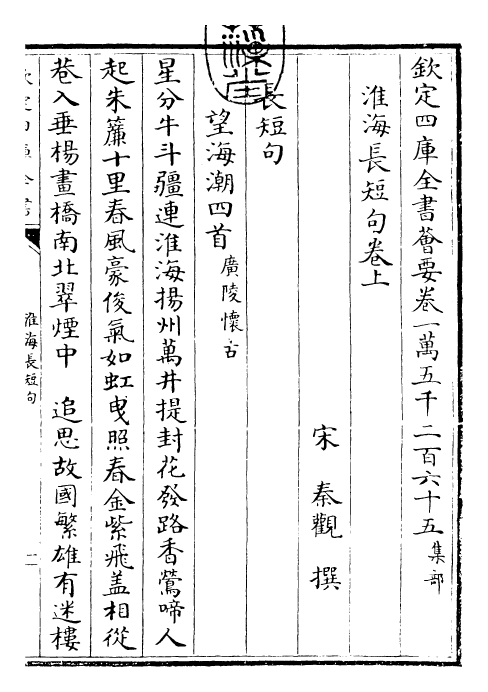 欽定四庫全書薈要卷一萬五千二百六十五集部
淮海長短句卷上
宋 秦觀 撰
長短句
望海潮四首廣陵懷古
星分牛斗疆連淮海揚州萬井提封花發路香鶯啼人
起朱簾十里春風豪俊氣如虹曳照春金紫飛盖相從
巷入垂楊畫橋南北翠煙中 追思故國繁雄有迷樓
淮海長短句